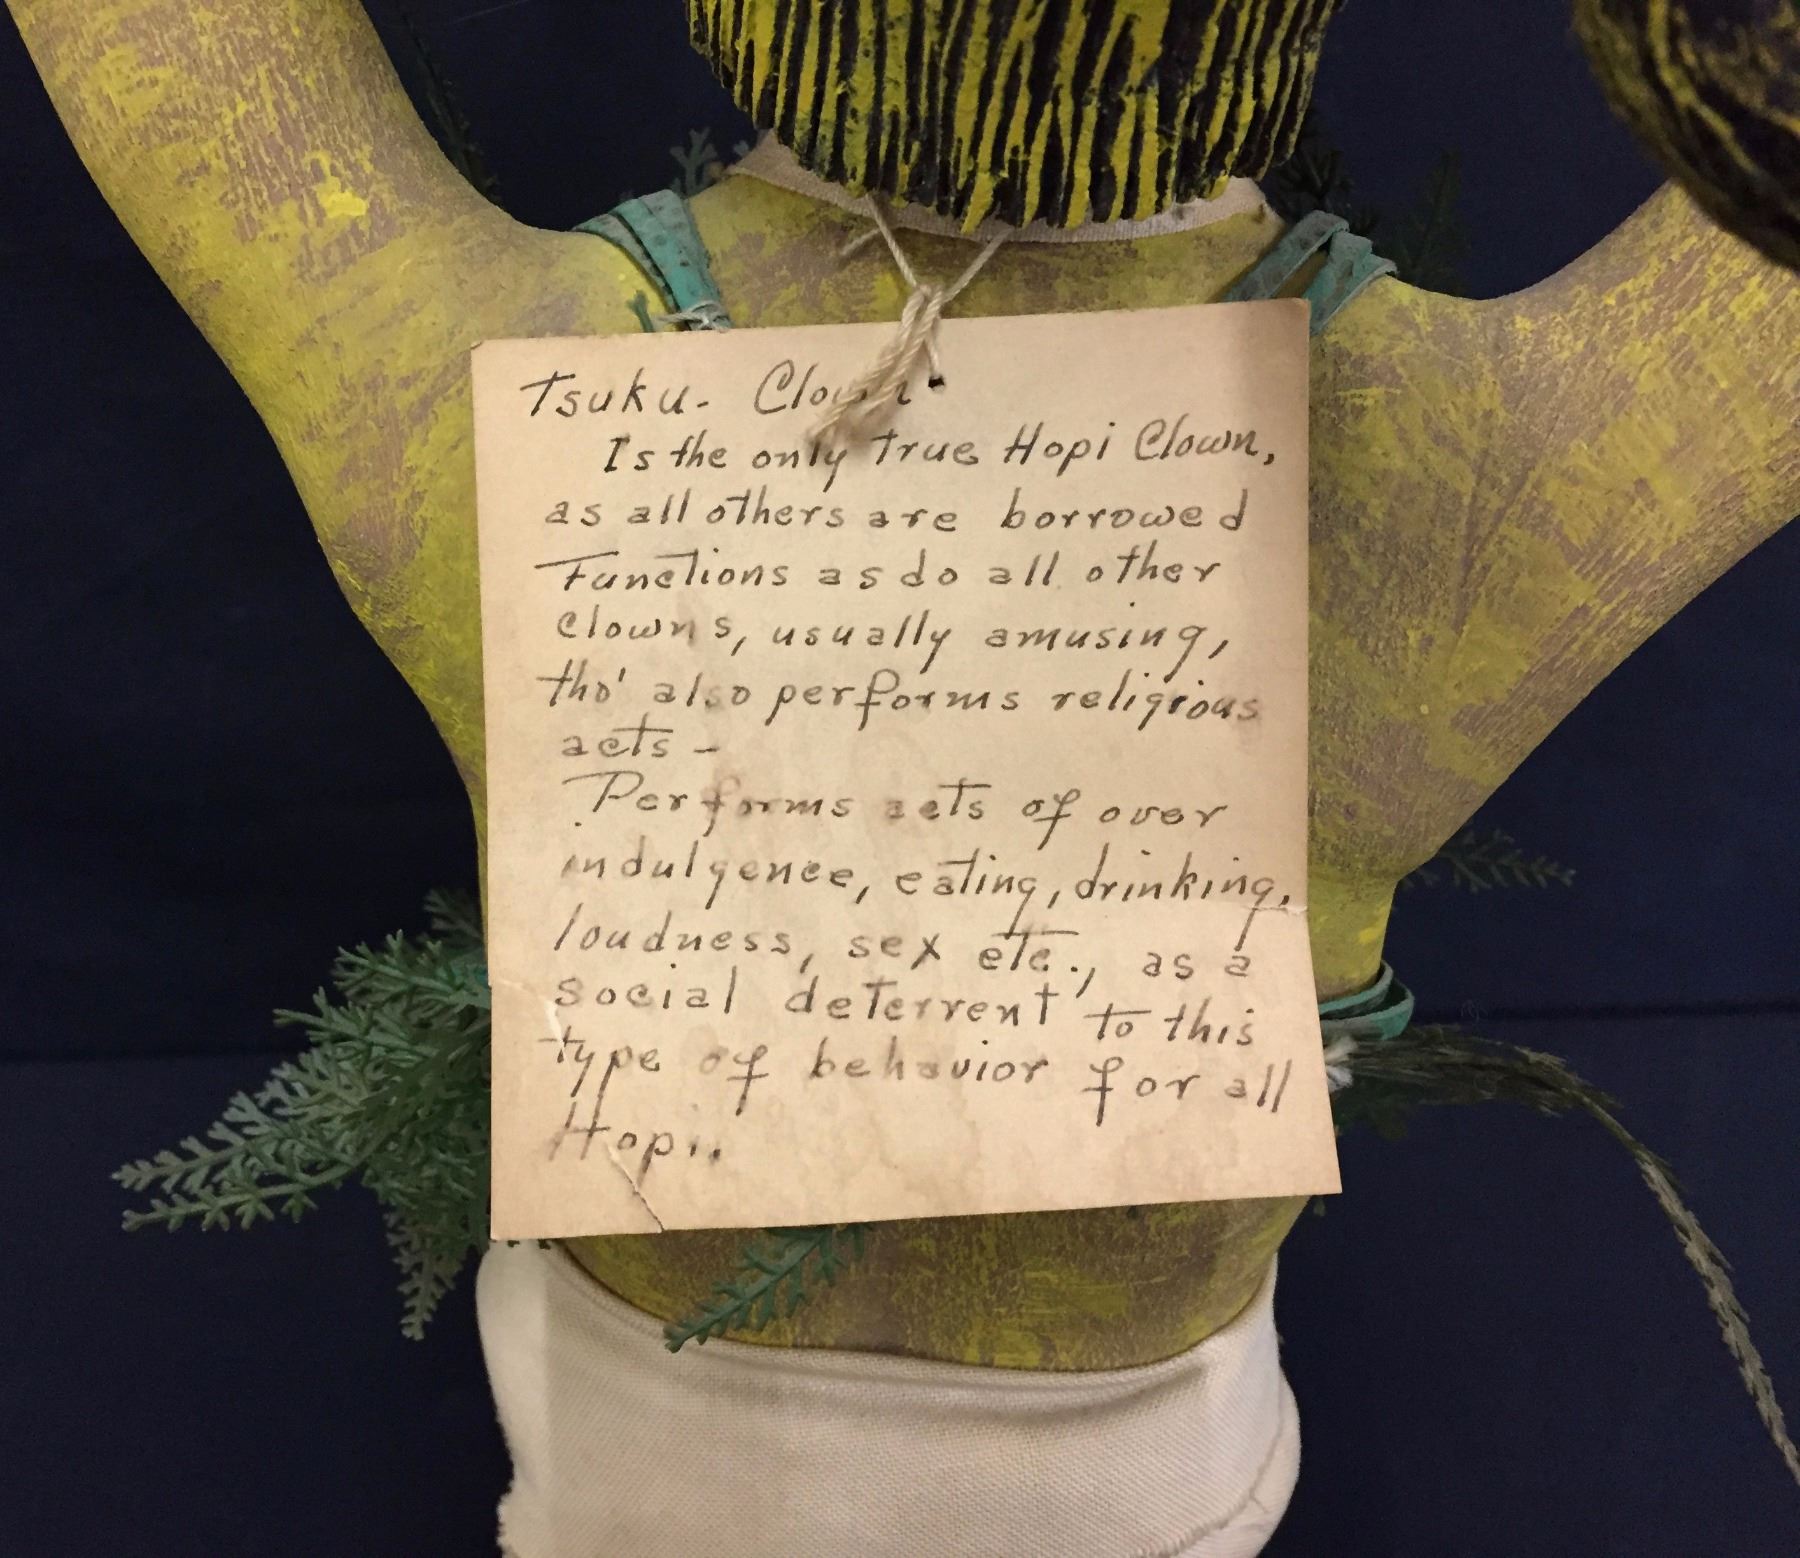 Tsuku- Clown
Is the only true Hopi Clown,
as all others are borrowed
Functions as do all other
clowns, usually amusing,
tho' also performs religious
acts -
Performs acts of over
indulgence, eating, drinking,
loudness, sex etc., as a
social deterrent to this
type of behavior for all
Hopi.